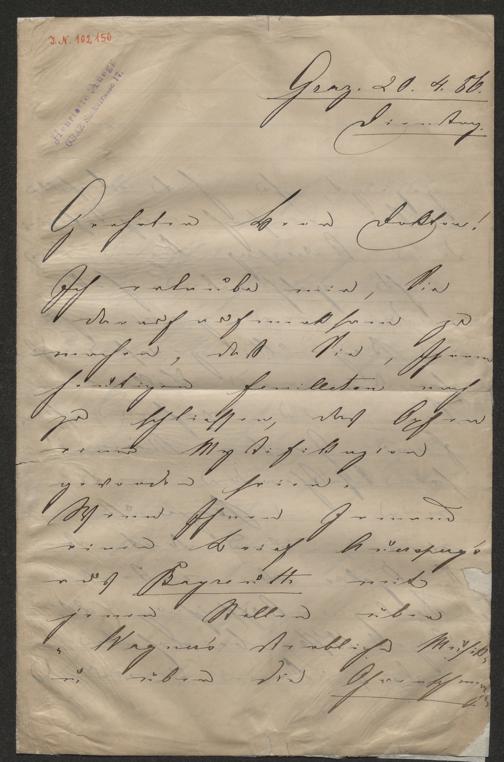 J.N. 102.150
Graz. 20. 4. 86.
Dienstag.
Geehrter Herr Doktor!
Ich erlaube mir, Sie
darauf aufmerksam zu
machen, daß Sie, Ihrem
heutigen Feuilleton nach
zu schließen, das Opfer
einer Mystifikazion
geworden seien.
Wenn Ihnen Jemand
einen Brief Auersperg's
aus Bayreuth mit
jenen Stellen über
"Wagner's sterbliche
u. über die